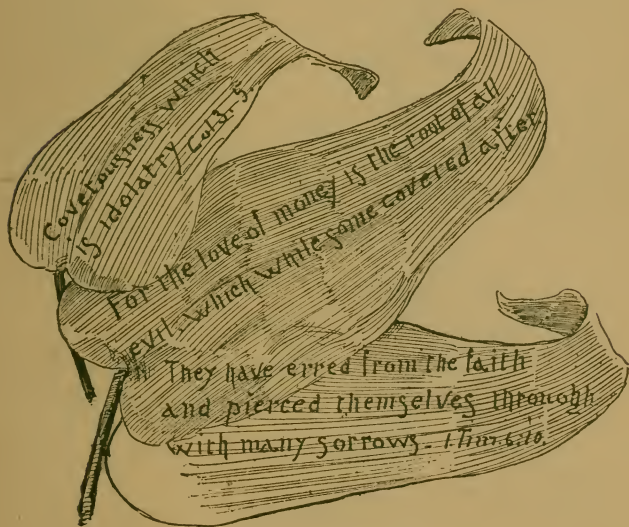 Covetousness which
is idolatry Col 3-5.
For the love of money is the root of all
evil. which while some coveted after
They have erred from the faith
and pierced themselves through
with many sorrows - 1. Tim. 6:10.